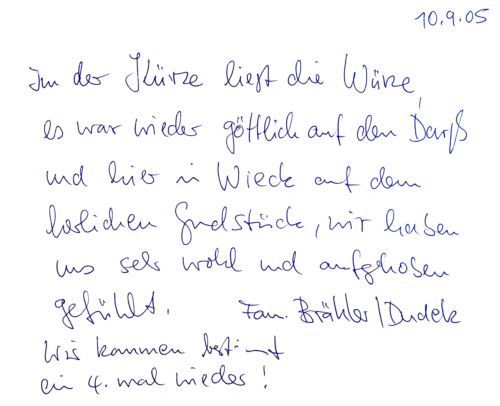 10.9.05
In der Kürze liegt die Würze,
es war wieder göttlich auf den Darß
und hier in Wieck auf dem
herlichen Grudstück, wir haben
uns sehr wohl und aufgehoben
gefühlt. Fam. Brähler/Dudek
Wir kommen bestimmt
ein 4. mal wieder!